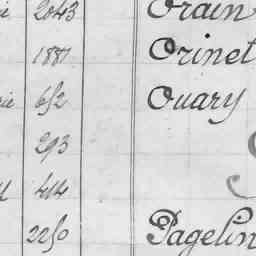 2043 Orain
1881 Orinet
652 Ouary
293
414
2250 Pagelin